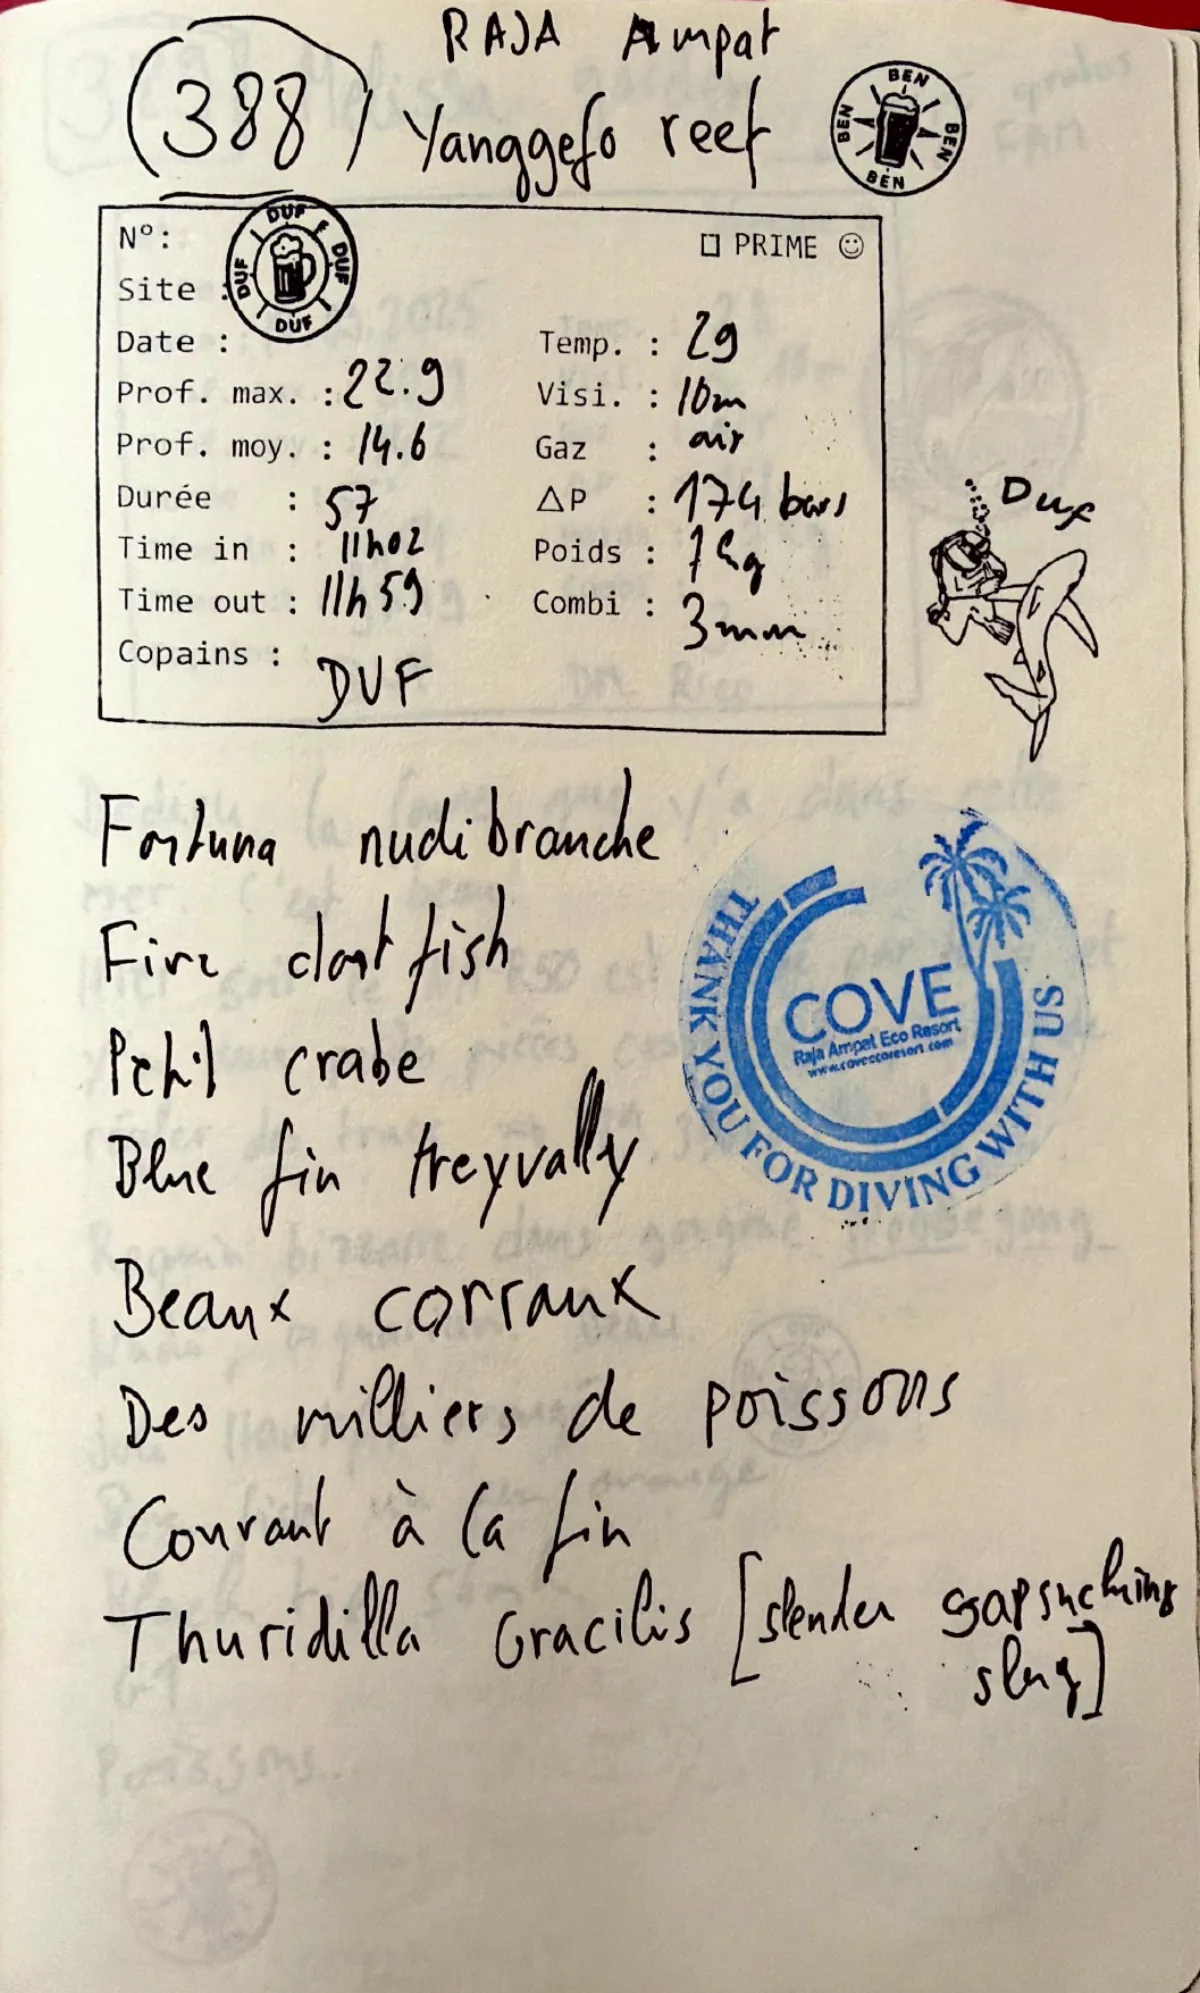 RAJA Ampat
388 Yanggefo reef
BEN BEN BEN BEN
DUF DUF DUF DUF
N°:
□ PRIME ☺
Site :
Date :
Temp. : 29
Prof. max. : 22.9
Visi. : 10m
Prof. moy. : 14.6
Gaz : air
Durée : 57
ΔP : 174 bars
Time in : 11h02
Poids : 7kg
Time out : 11h59
Combi : 3mm
Copains : DUF
Duf
Fortuna nudibranche
Fire dart fish
Petit crabe
Blue fin treyvally
Beaux corraux
Des milliers de poissons
Courant à la fin
Thuridilla Gracilis [slender sapsucking
slug]
COVE
Raja Ampat Eco Resort
www.coveecoresort.com
THANK YOU FOR DIVING WITH US